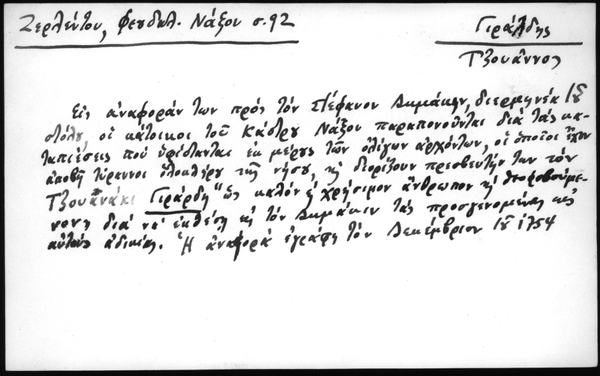 Ζερλέντου, Φευδαλ. Νάξου σ. 92
Γιράλδης
Τζουάννος
Εἰς ἀναφοράν των πρός τόν Στέφανον Δημάκην, διερμηνέα τοῦ
στόλου, οἱ κάτοικοι τοῦ Κάστρου Νάξου παραπονοῦνται διά τάς κα-
ταπιέσεις πού ὑφίστανται ἐκ μέρους τῶν ὀλίγων ἀρχόντων, οἱ ὁποῖοι ἔχουν
ἀποβῆ τύραννοι ὁλοκλήρου τῆς νήσου, καί διορίζουν πρεσβευτήν των τόν
Τζουανάκι Γιράρδη "ὡς καλόν καί χρήσιμον ἄνθρωπον καί θεοφοβούμε-
νον" διά νά ἐκθέση εἰς τόν Δημάκην τάς προσγενομένας εἰς
αὐτούς ἀδικίας. Ἡ ἀναφορά ἐγράφη τόν Δεκέμβριον τοῦ 1754